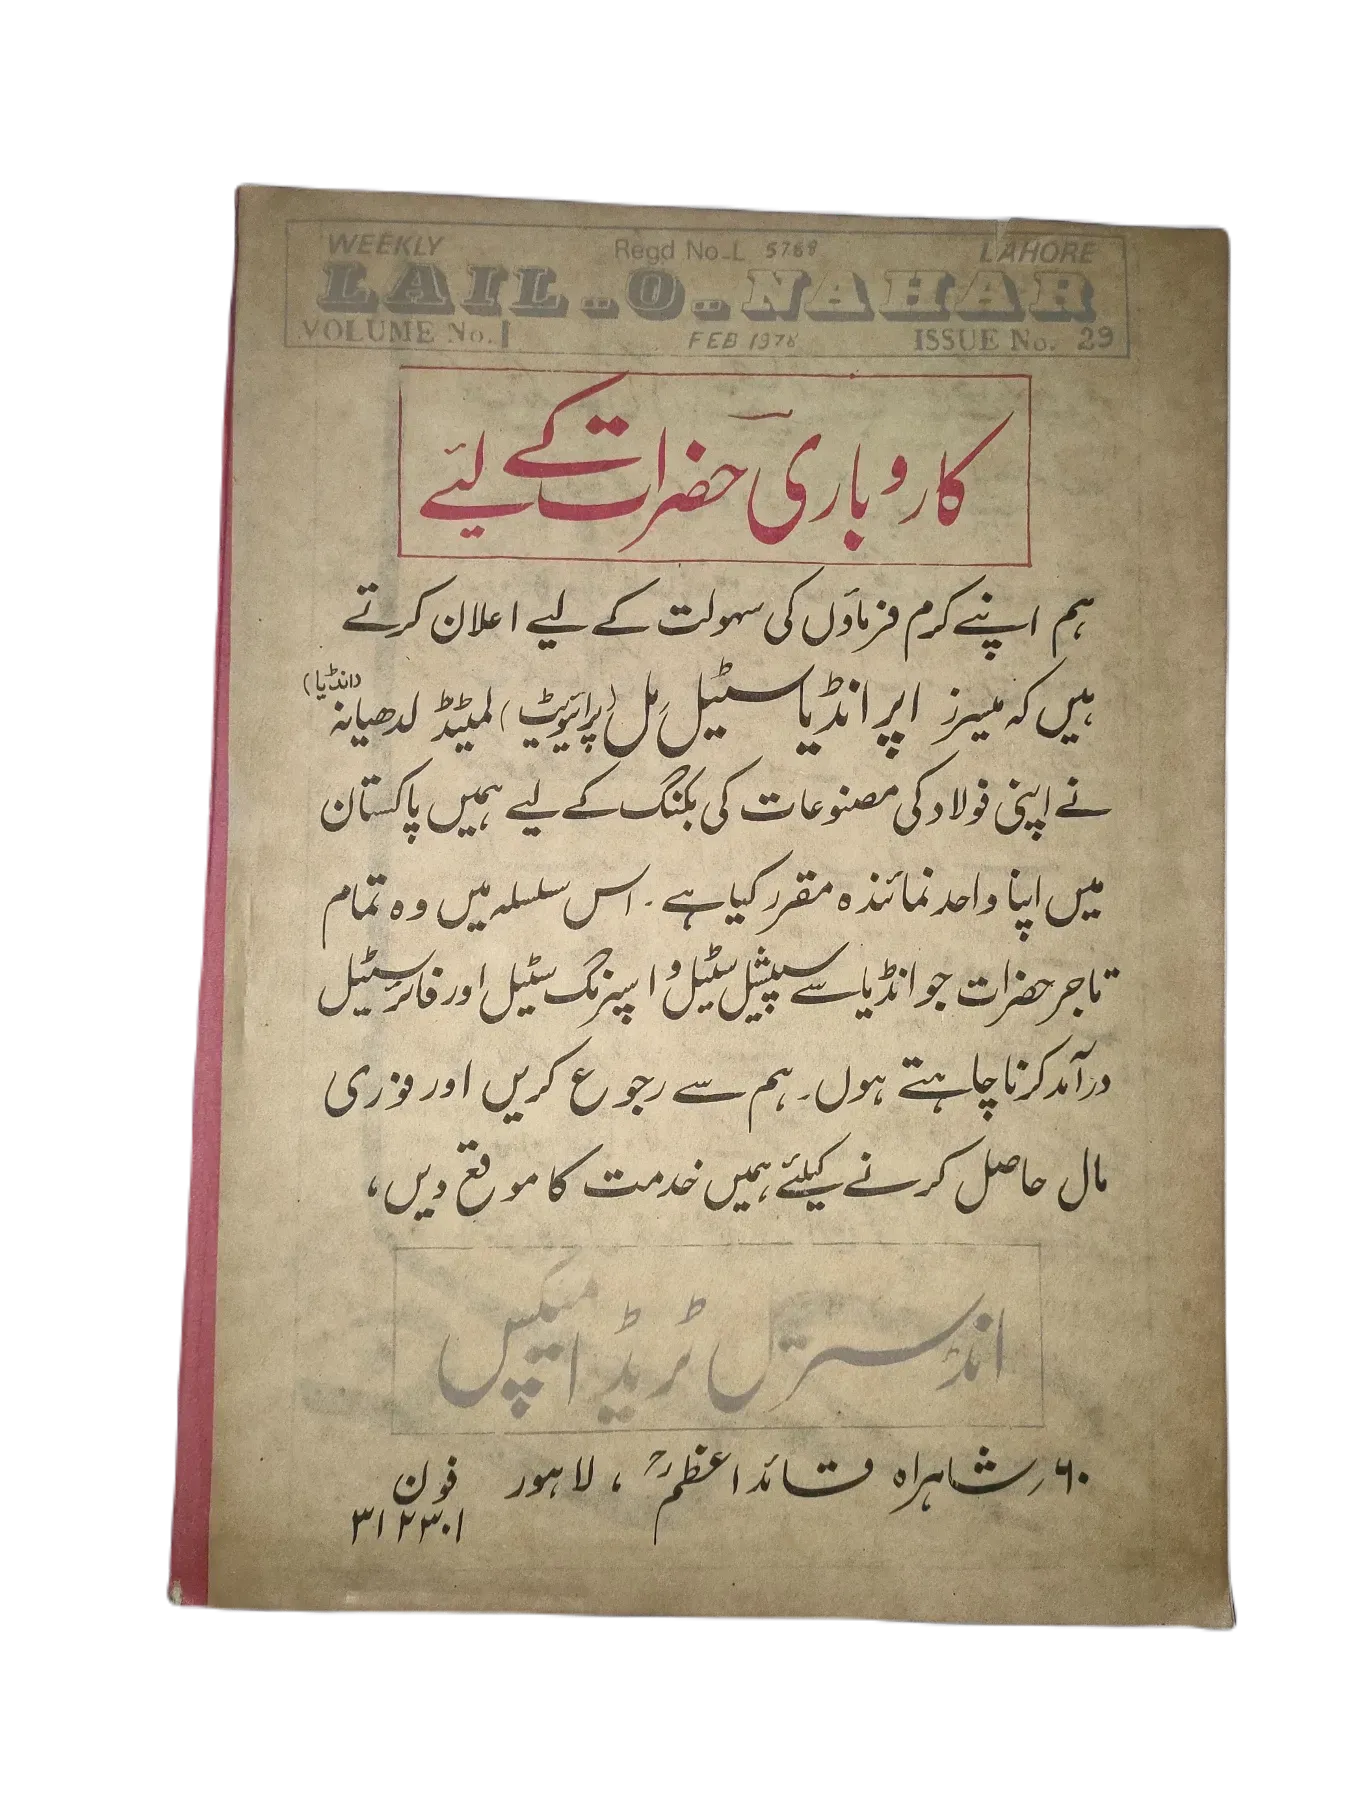 WEEKLY Regd No-L 5768 LAHORE
LAIL-O-NAHAR
VOLUME No. 1 FEB 1978 ISSUE No. 29
کاروباری حضرات کے لئے
ہم اپنے کرم فرماؤں کی سہولت کے لیے اعلان کرتے
ہیں کہ میسرز اپر انڈیا سٹیل مِل (پرائیویٹ) لمیٹڈ لدھیانہ (انڈیا)
نے اپنی فولاد کی مصنوعات کی بکنگ کے لیے ہمیں پاکستان
میں اپنا واحد نمائندہ مقرر کیا ہے۔ اس سلسلہ میں وہ تمام
تاجر حضرات جو انڈیا سے سپیشل سٹیل و اسپرنگ سٹیل اور فائر سٹیل
درآمد کرنا چاہتے ہوں۔ ہم سے رجوع کریں اور فوری
مال حاصل کرنے کیلئے ہمیں خدمت کا موقع دیں،
انڈسٹریل ٹریڈ امپکس
۶۰ر شاہراہ قائداعظمؒ، لاہور فون
۳۱۲۳۰۱